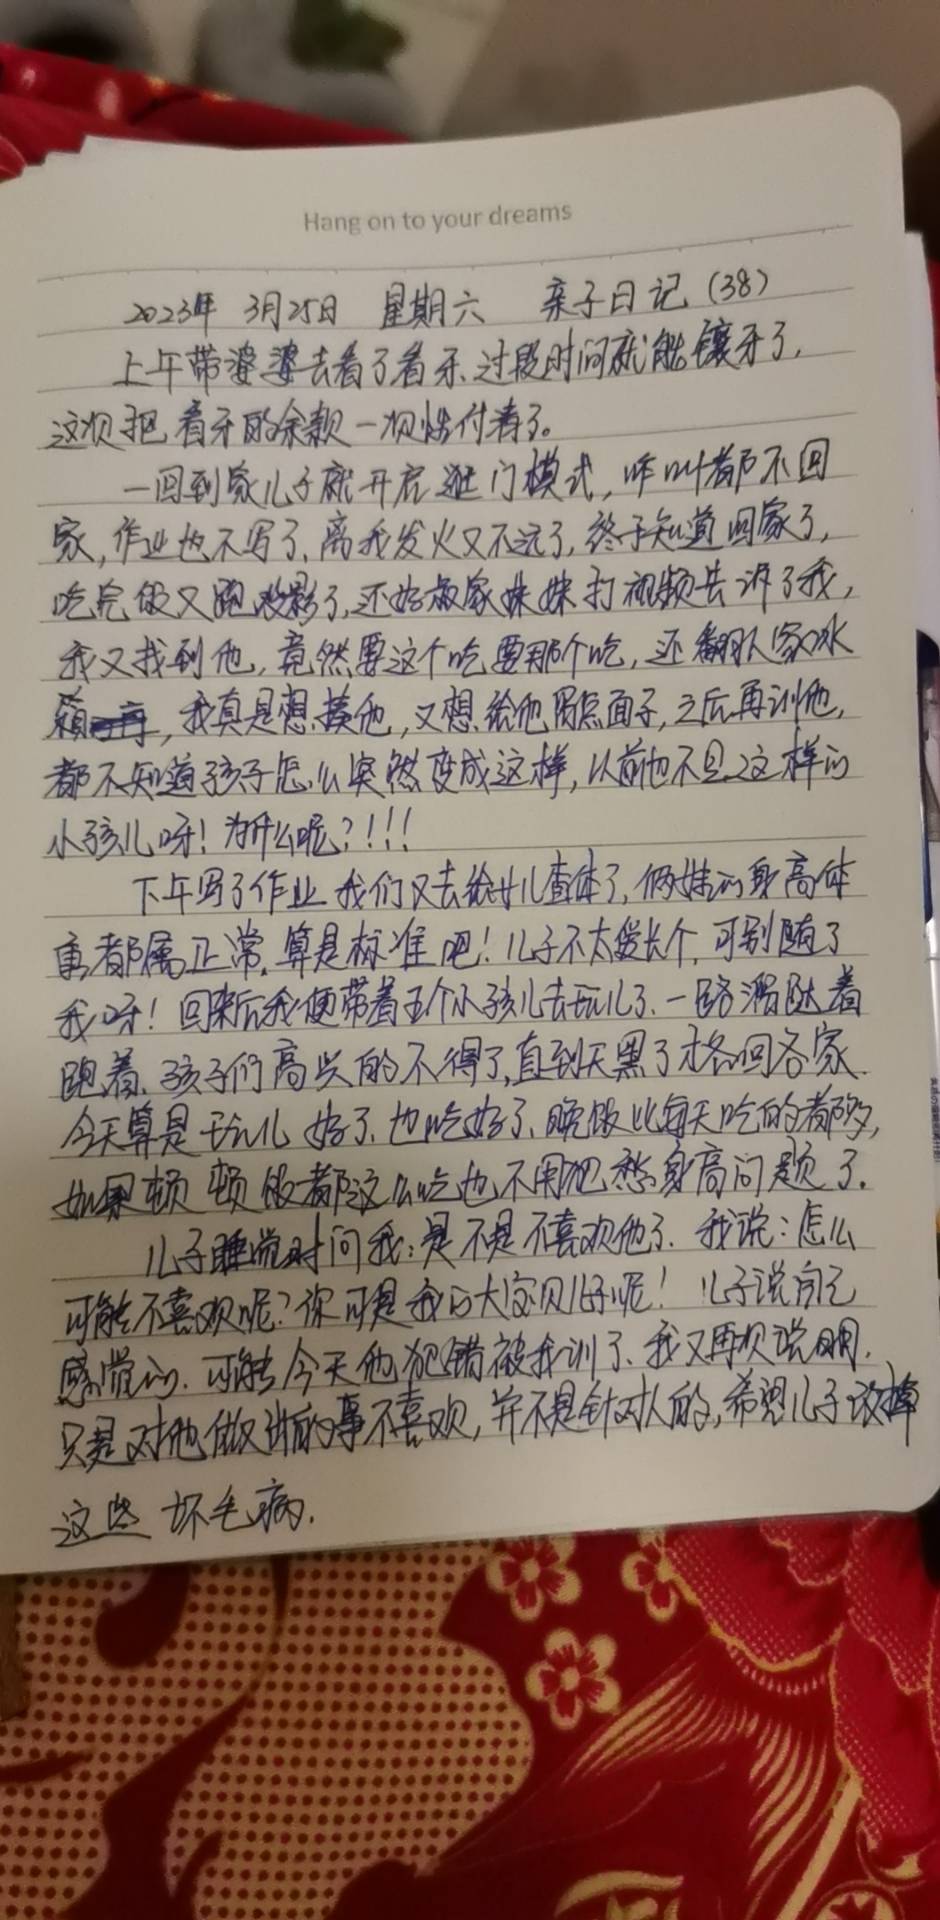 Hang on to your dreams
2023年 3月25日 星期六 亲子日记(38)
上午带婆婆去看了看牙、过段时间就能镶牙了,
这次把看牙的余款一次性付清了。
一回到家儿子就开启逛门模式,咋叫都不回
家,作业也不写了、离我发火又不远了,终于知道回家了,
吃完饭又跑没影了,还好叔家妹妹打视频告诉了我,
我又找到他,竟然要这个吃要那个吃,还翻人家冰
箱,我真是想揍他,又想给他留点面子,之后再训他,
都不知道孩子怎么突然变成这样,以前也不是这样的
小孩儿呀!为什么呢?!!!
下午写了作业我们又去给女儿查体了,俩娃的身高体
重都属正常,算是标准吧!儿子不太爱长个,可别随了
我呀!回来后我便带着五个小孩儿去玩儿了、一路溜达着
跑着、孩子们高兴的不得了,直到天黑了才各回各家.
今天算是玩儿好了、也吃好了、晚饭比每天吃的都多,
如果顿顿饭都这么吃也不用犯愁身高问题了.
儿子睡觉时问我:是不是不喜欢他了.我说:怎么
可能不喜欢呢?你可是我的大宝贝儿子呢!儿子说自己
感觉的.可能今天他犯错被我训了、我又再次说明.
只是对他做错的事不喜欢,并不是针对人的,希望儿子改掉
这些坏毛病.